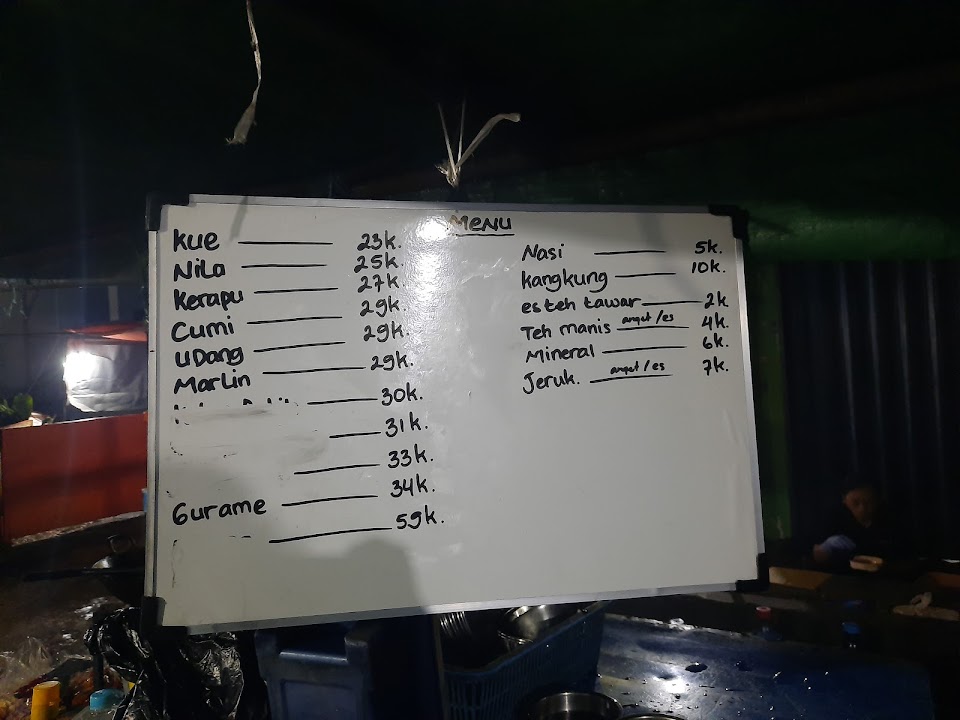 MENU
Kue 23k.
Nila 25k.
Kerapu 27k.
Cumi 29k.
UDang 29k.
Marlin 29k.
30k.
31k.
33k.
Gurame 34k.
59k.
Nasi 5k.
kangkung 10k.
es teh tawar 2k
Teh manis anget/es 4k.
Mineral 6k.
Jeruk. anget/es 7k.